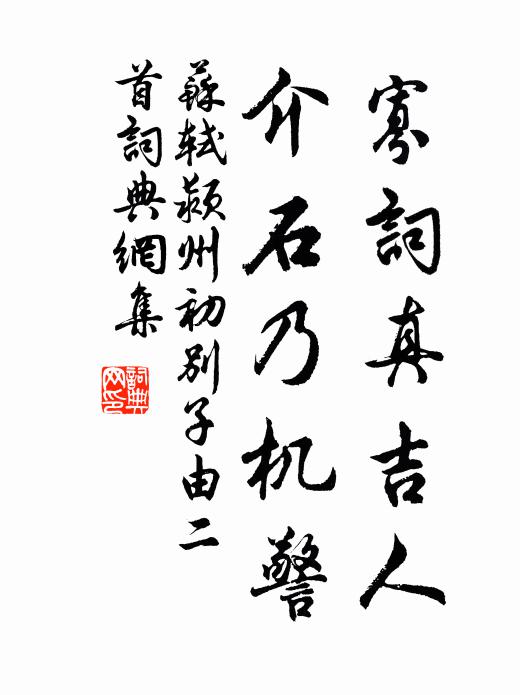 寡詞真吉人
介石乃机警
蘇軾潁州初別子由二
首詞典網集
詞典網印